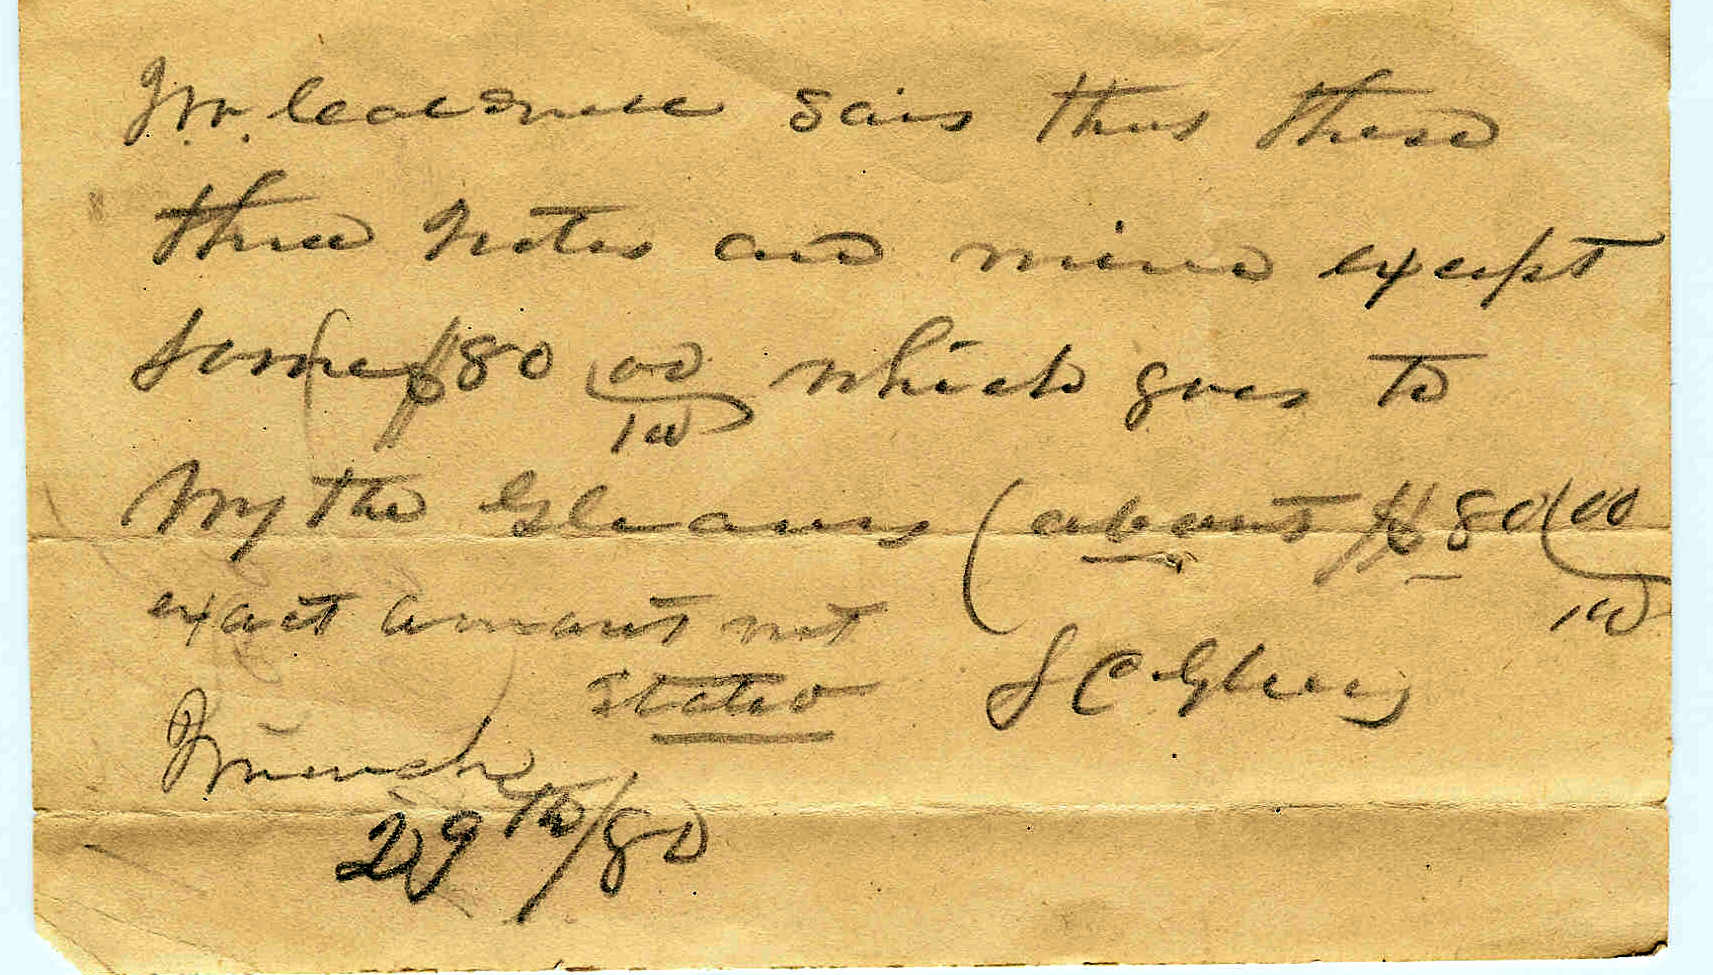 says thus these
three notes are mine except
some $80 00/100 which goes to
Wythe Gleaves (about $80 00/100
exact amount not
stated S C Gleaves
March
29th/80